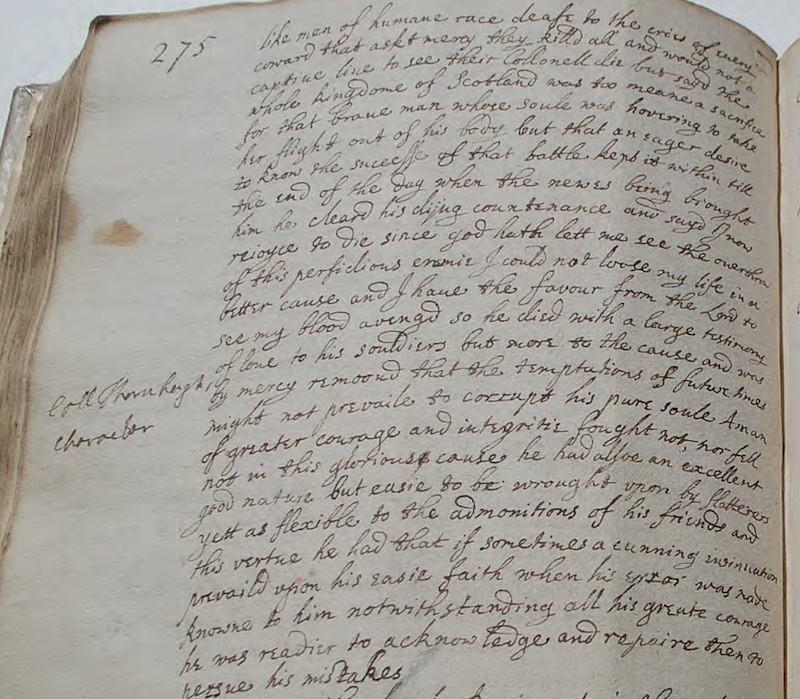 275
like men of humane race deafe to the cries of every
coward that askt mercy they killd all and would not a
captive live to see their Collonell die but sayd the
whole kingdome of Scotland was too meane a sacrifice
for that brave man whose soule was hovering to take
her flight out of his body but that an eager desire
to know the successe of that battle kept it within till
the end of the day when the newes being brought
him he cleard his dijng countenance and sayd I now
rejoyce to die since god hath lett me see the overthrow
of this perficlious enemie I could not loose my life in a
better cause and I have the favour from the Lord to
see my blood avengd so he died with a large testimony
of love to his souldiers but more to the cause and was
by mercy remoovd that the temptations of future times
might not prevaile to corrupt his pure soule A man
of greater courage and integritie fought not, nor fell
not in this glorious cause he had allso an excellent
good nature but easie to be wrought upon by flatterers
yett as flexible to the admonitions of his friends and
this vertue he had that if sometimes a cunning insinuation
prevaild upon his easie faith when his error was made
knowne to him notwithstanding all his greate courage
he was readier to acknowledge and repaire then to
persue his mistakes
Coll Thornhagh,
character